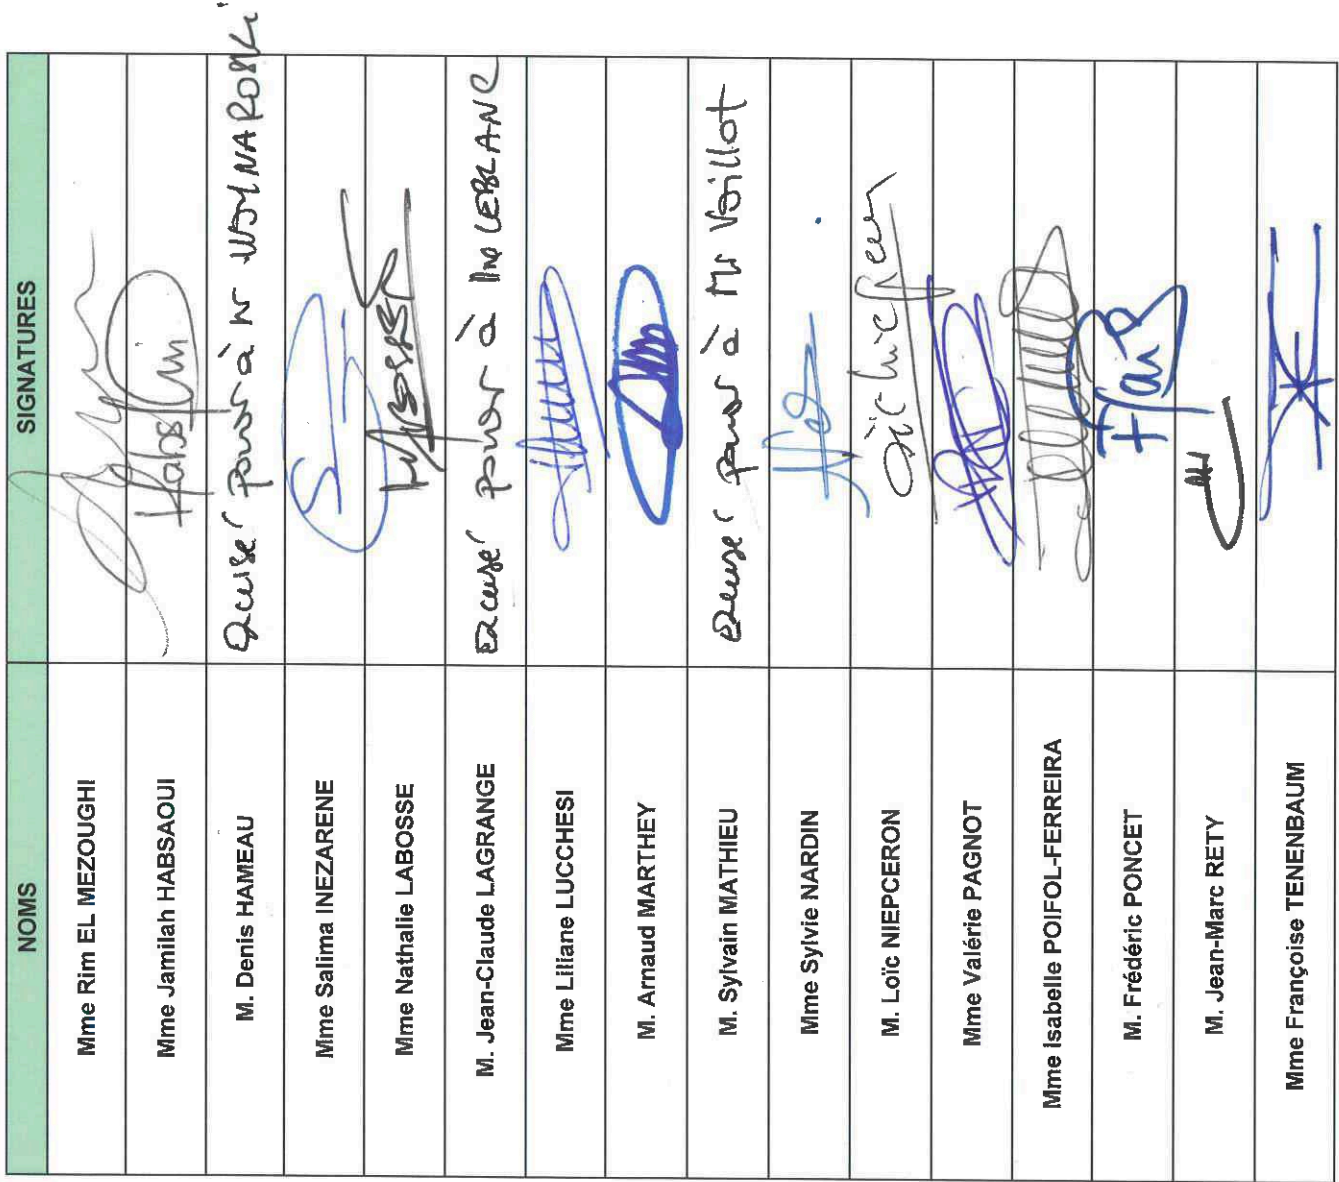 NOMS SIGNATURES
Mme Rim EL MEZOUGHI
Mme Jamilah HABSAOUI
M. Denis HAMEAU Excusé pouvoir à Mr WOYNAROSKI
Mme Salima INEZARENE
Mme Nathalie LABOSSE LABOSSE
M. Jean-Claude LAGRANGE Excusé pouvoir à Mme LEBLANC
Mme Liliane LUCCHESI
M. Arnaud MARTHEY
M. Sylvain MATHIEU Excusé pouvoir à Mr Voillot
Mme Sylvie NARDIN
M. Loïc NIEPCERON
Mme Valérie PAGNOT
Mme Isabelle POIFOL-FERREIRA
M. Frédéric PONCET
M. Jean-Marc RETY
Mme Françoise TENENBAUM